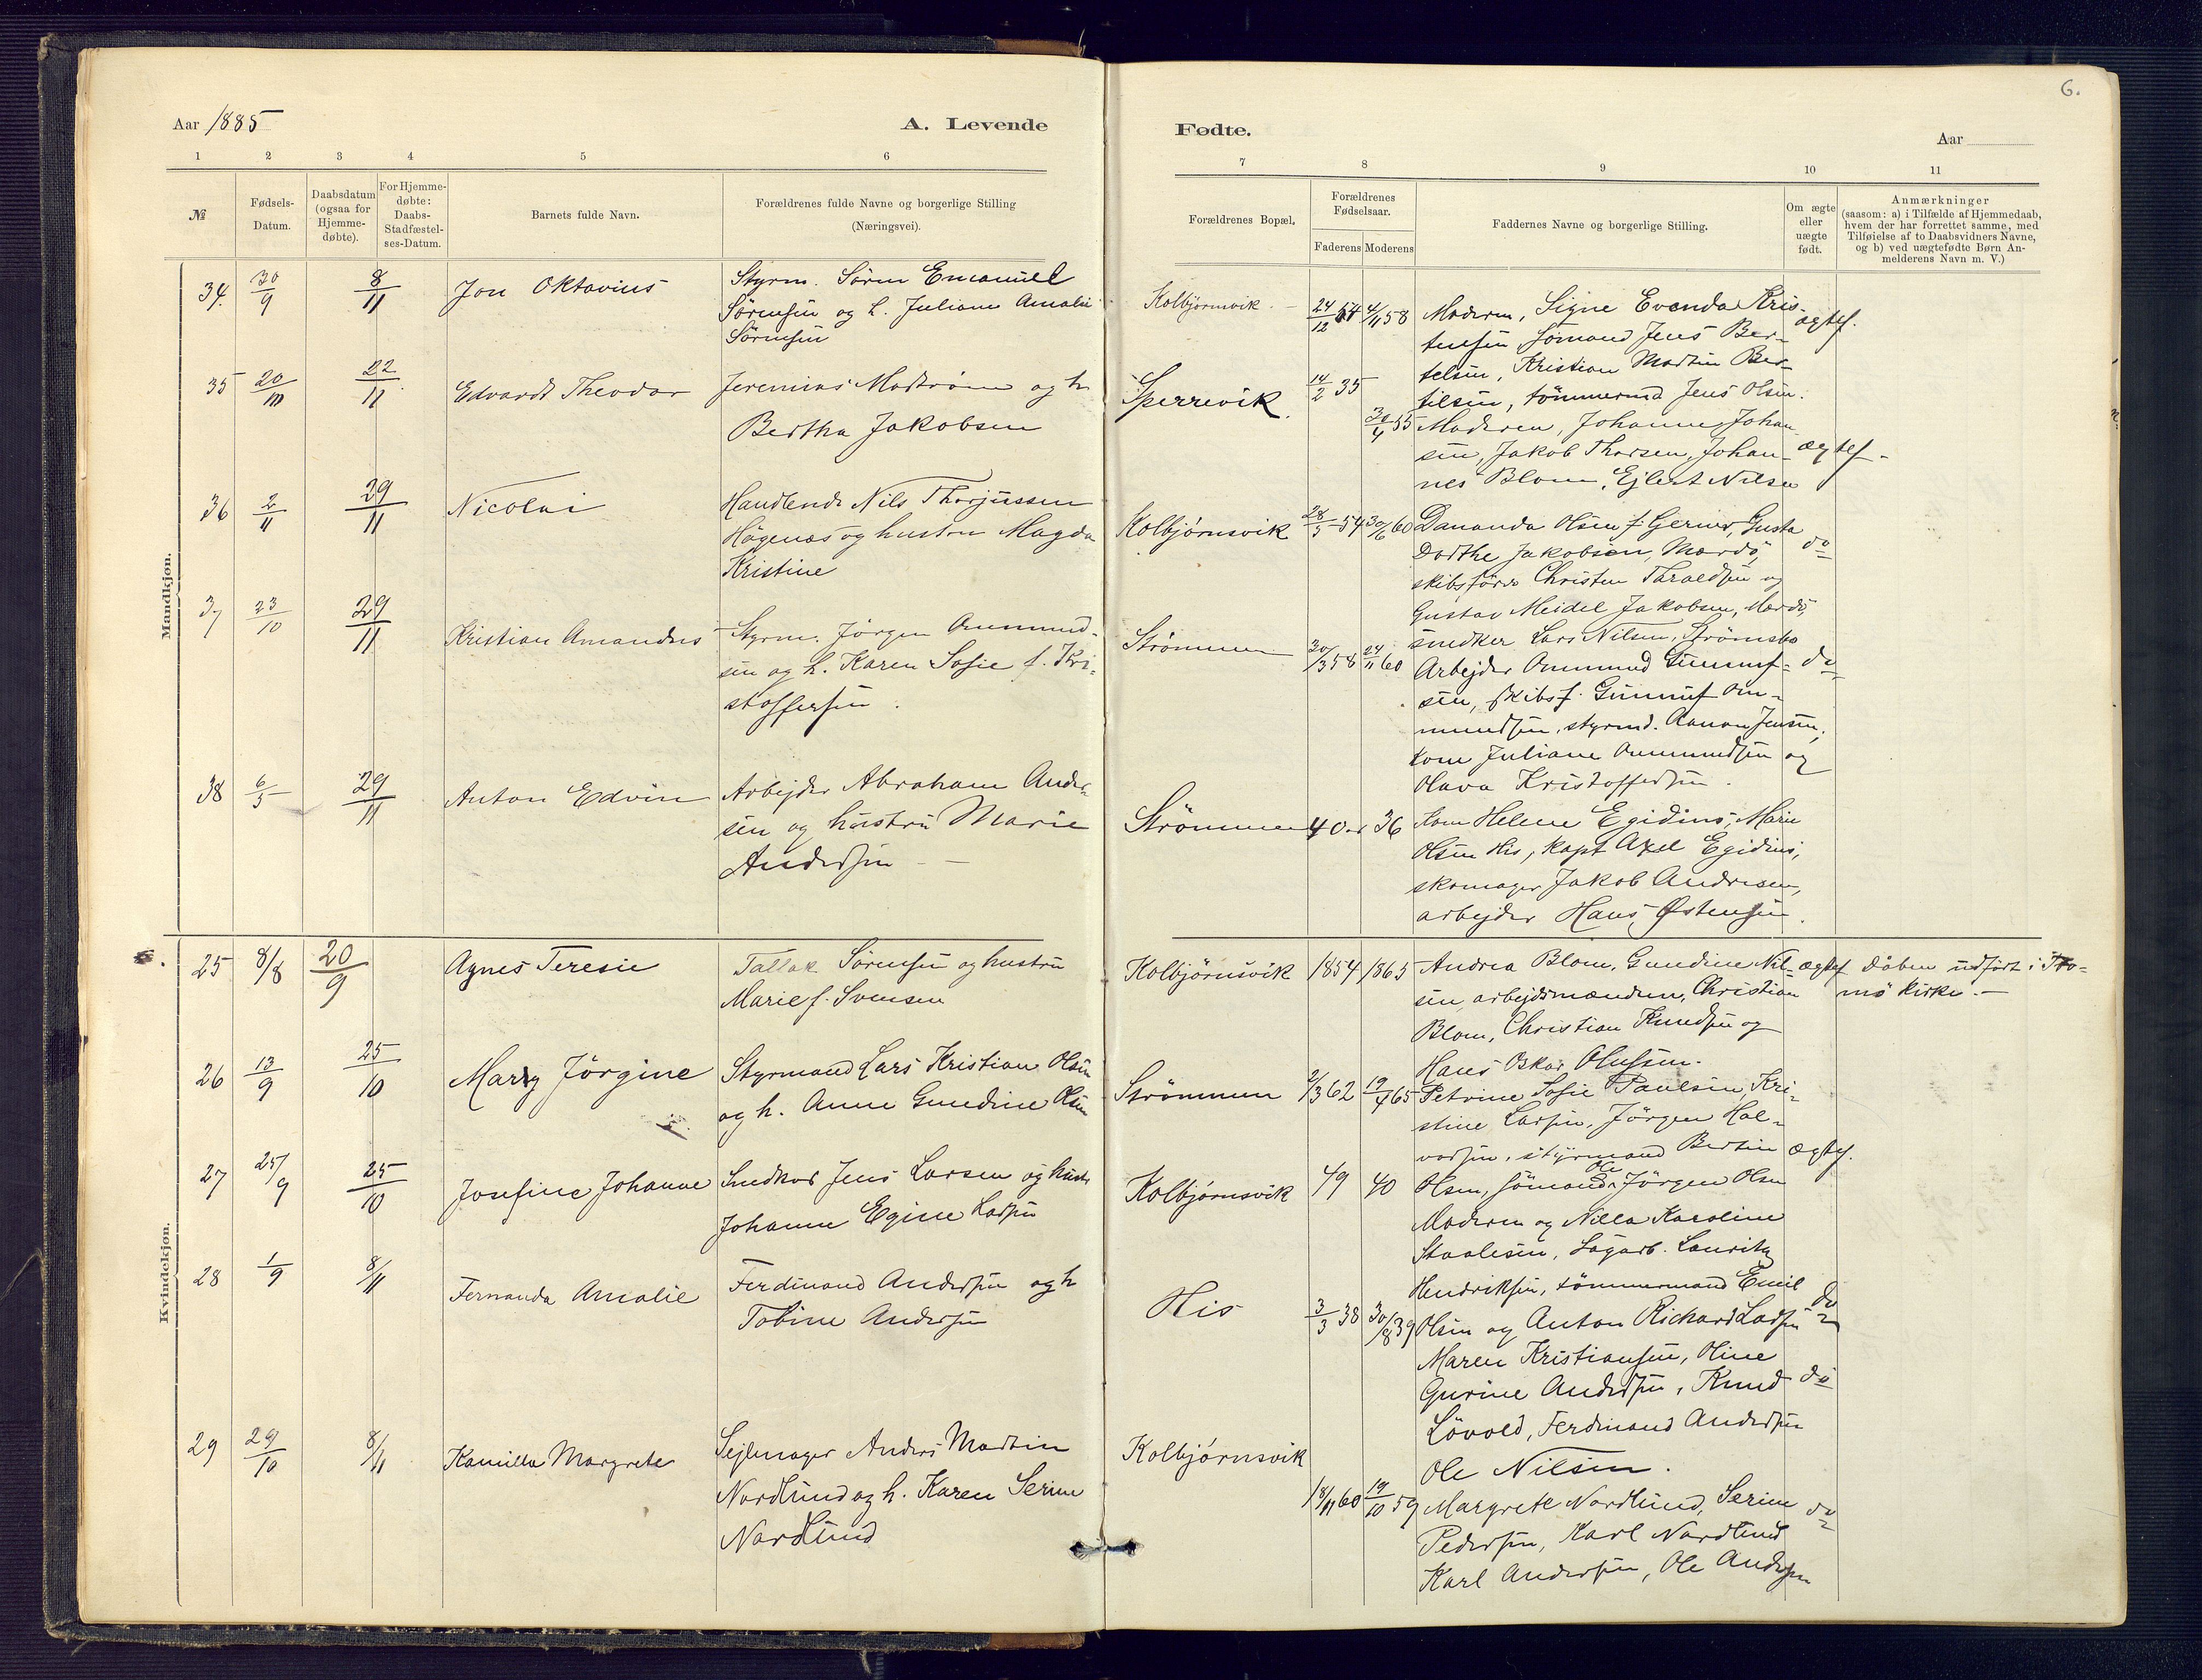 6.
Aar 1885
A. Levende
Fødte.
Aar
1 2 3 4 5 6
7 8 9 10 11
№
Fødsels-
Datum.
Daabsdatum
(ogsaa for
Hjemme-
døbte).
For Hjemme-
døbte:
Daabs-
Stadfæstel-
ses-Datum.
Barnets fulde Navn.
Forældrenes fulde Navne og borgerlige Stilling
(Næringsvei).
Forældrenes Bopæl.
Forældrenes
Fødselsaar.
Faderens Moderens
Faddernes Navne og borgerlige Stilling.
Om ægte
eller
uægte
født.
Anmærkninger
(saasom: a) i Tilfælde af Hjemmedaab,
hvem der har forrettet samme, med
Tilføielse af to Daabsvidners Navne,
og b) ved uægtefødte Børn An-
melderens Navn m. V.)
Mandkjøn.
34. 30/9 8/11 Jon Oktavius
Styrm. Sörm Emanuel
Sörensen og h. Juliane Amalie
Sörensen
Kolbjörnsvik 24/12 54 4/11 58
Moderen, Signe Evenda Kris-
tensen, sömand Jens Ber-
telsen, Kristian Martin Ber-
telsen, tömmermd Jens Olsen.
ægtef.
35 20/10 22/11 Edvardt Theodor
Jeremias Madtröm og h
Bertha Jakobsen
Sperrevik. 14/2 35 30/4 55
Moderen, Johanne Johan
sen, Jakob Thorsen, Johan-
nes Blom, Ejlert Nilsen
ægtef.
36 2/11 29/11 Nicolai
Handlende Nils Thorjussen
Högenæs og hustru Magda
Kristine
Kolbjörnsvik 28/5 54 30/6 60
Dananda Olsen f. Gerner, Gusta
Dorthe Jakobsen, Mærdö,
skibsförer Christen Tharaldsen og
Gustav Meidel Jakobsen, Mærdö,
snedker Lars Nilsen, Strömsbo
do
37 23/10 29/11 Kristian Amandus
Styrm. Jörgen Ommund-
sen og h. Karen Sofie f. Kri-
stoffersen.
Strömmen 30/3 58 24/11 60
Arbejder Ommund Gunnuf-
sen, skibsf. Gunnuf Om-
mundsen, styrmd. Aanon Jensen,
kone Juliane Ommundsen og
Olava Kristoffersen.
do
38 6/5 29/11 Anton Edvin
Arbejder Abraham Ander-
sen og hustru Marie
Andersen
Strömmen 40 36
kone Helene Egidius, Marie
Olsen His, kapt Axel Egidius,
skomager Jakob Andresen,
arbejder Hans Østensen.
Kvindekjøn.
25 8/8 20/9 Agnes Teresie
Tallak Sörensen og hustru
Marie f. Svensen
Kolbjörnsvik 1854 1865
Andrea Blom, Gundine Nil-
sen, arbejdsmændene, Christian
Blom, Christian Knudsen og
Hans Oskar Olufsen.
ægtef
Dåben udfört i Tro-
mö kirke.
26 13/9 25/10 Marry Jörgine
Styrmand Lars Kristian Olsen
og h. Anne Gundine Olsen
Strömmen 2/3 62 19/4 65
Petrine Sofie Paulsen, Kri-
stine Larsen, Jörgen Hal-
vorsen, styrmand Bertin
Olsen, sömand Ole Jörgen Olsen
ægtef.
27 25/9 25/10 Josefine Johanne
Snedker Jens Larsen og hustr
Johanne Egine Larsen
Kolbjörnsvik 49 40
Moderen og Nilla Karoline
Staalesen, Sagarb. Lauritz
Hendriksen, tömmermand Emil
Olsen og Anton Richard Larsen
do
28 1/9 8/11 Fernanda Amalie
Ferdinand Andersen og h
Tobine Andersen
His 3/3 38 30/8 39
Maren Kristiansen, Oline
Gurine Andersen, Knud
Lövold, Ferdinand Andersen
Ole Nilsen.
do
29 29/10 8/11 Kamilla Margrete
Sejlmager Anders Martin
Nordlund og h. Karen Serine
Nordlund
Kolbjörnsvik 18/11 60 19/10 59
Margrete Nordlund, Serine
Pedersen, Karl Nordlund
Karl Andersen, Ole Andersen
do